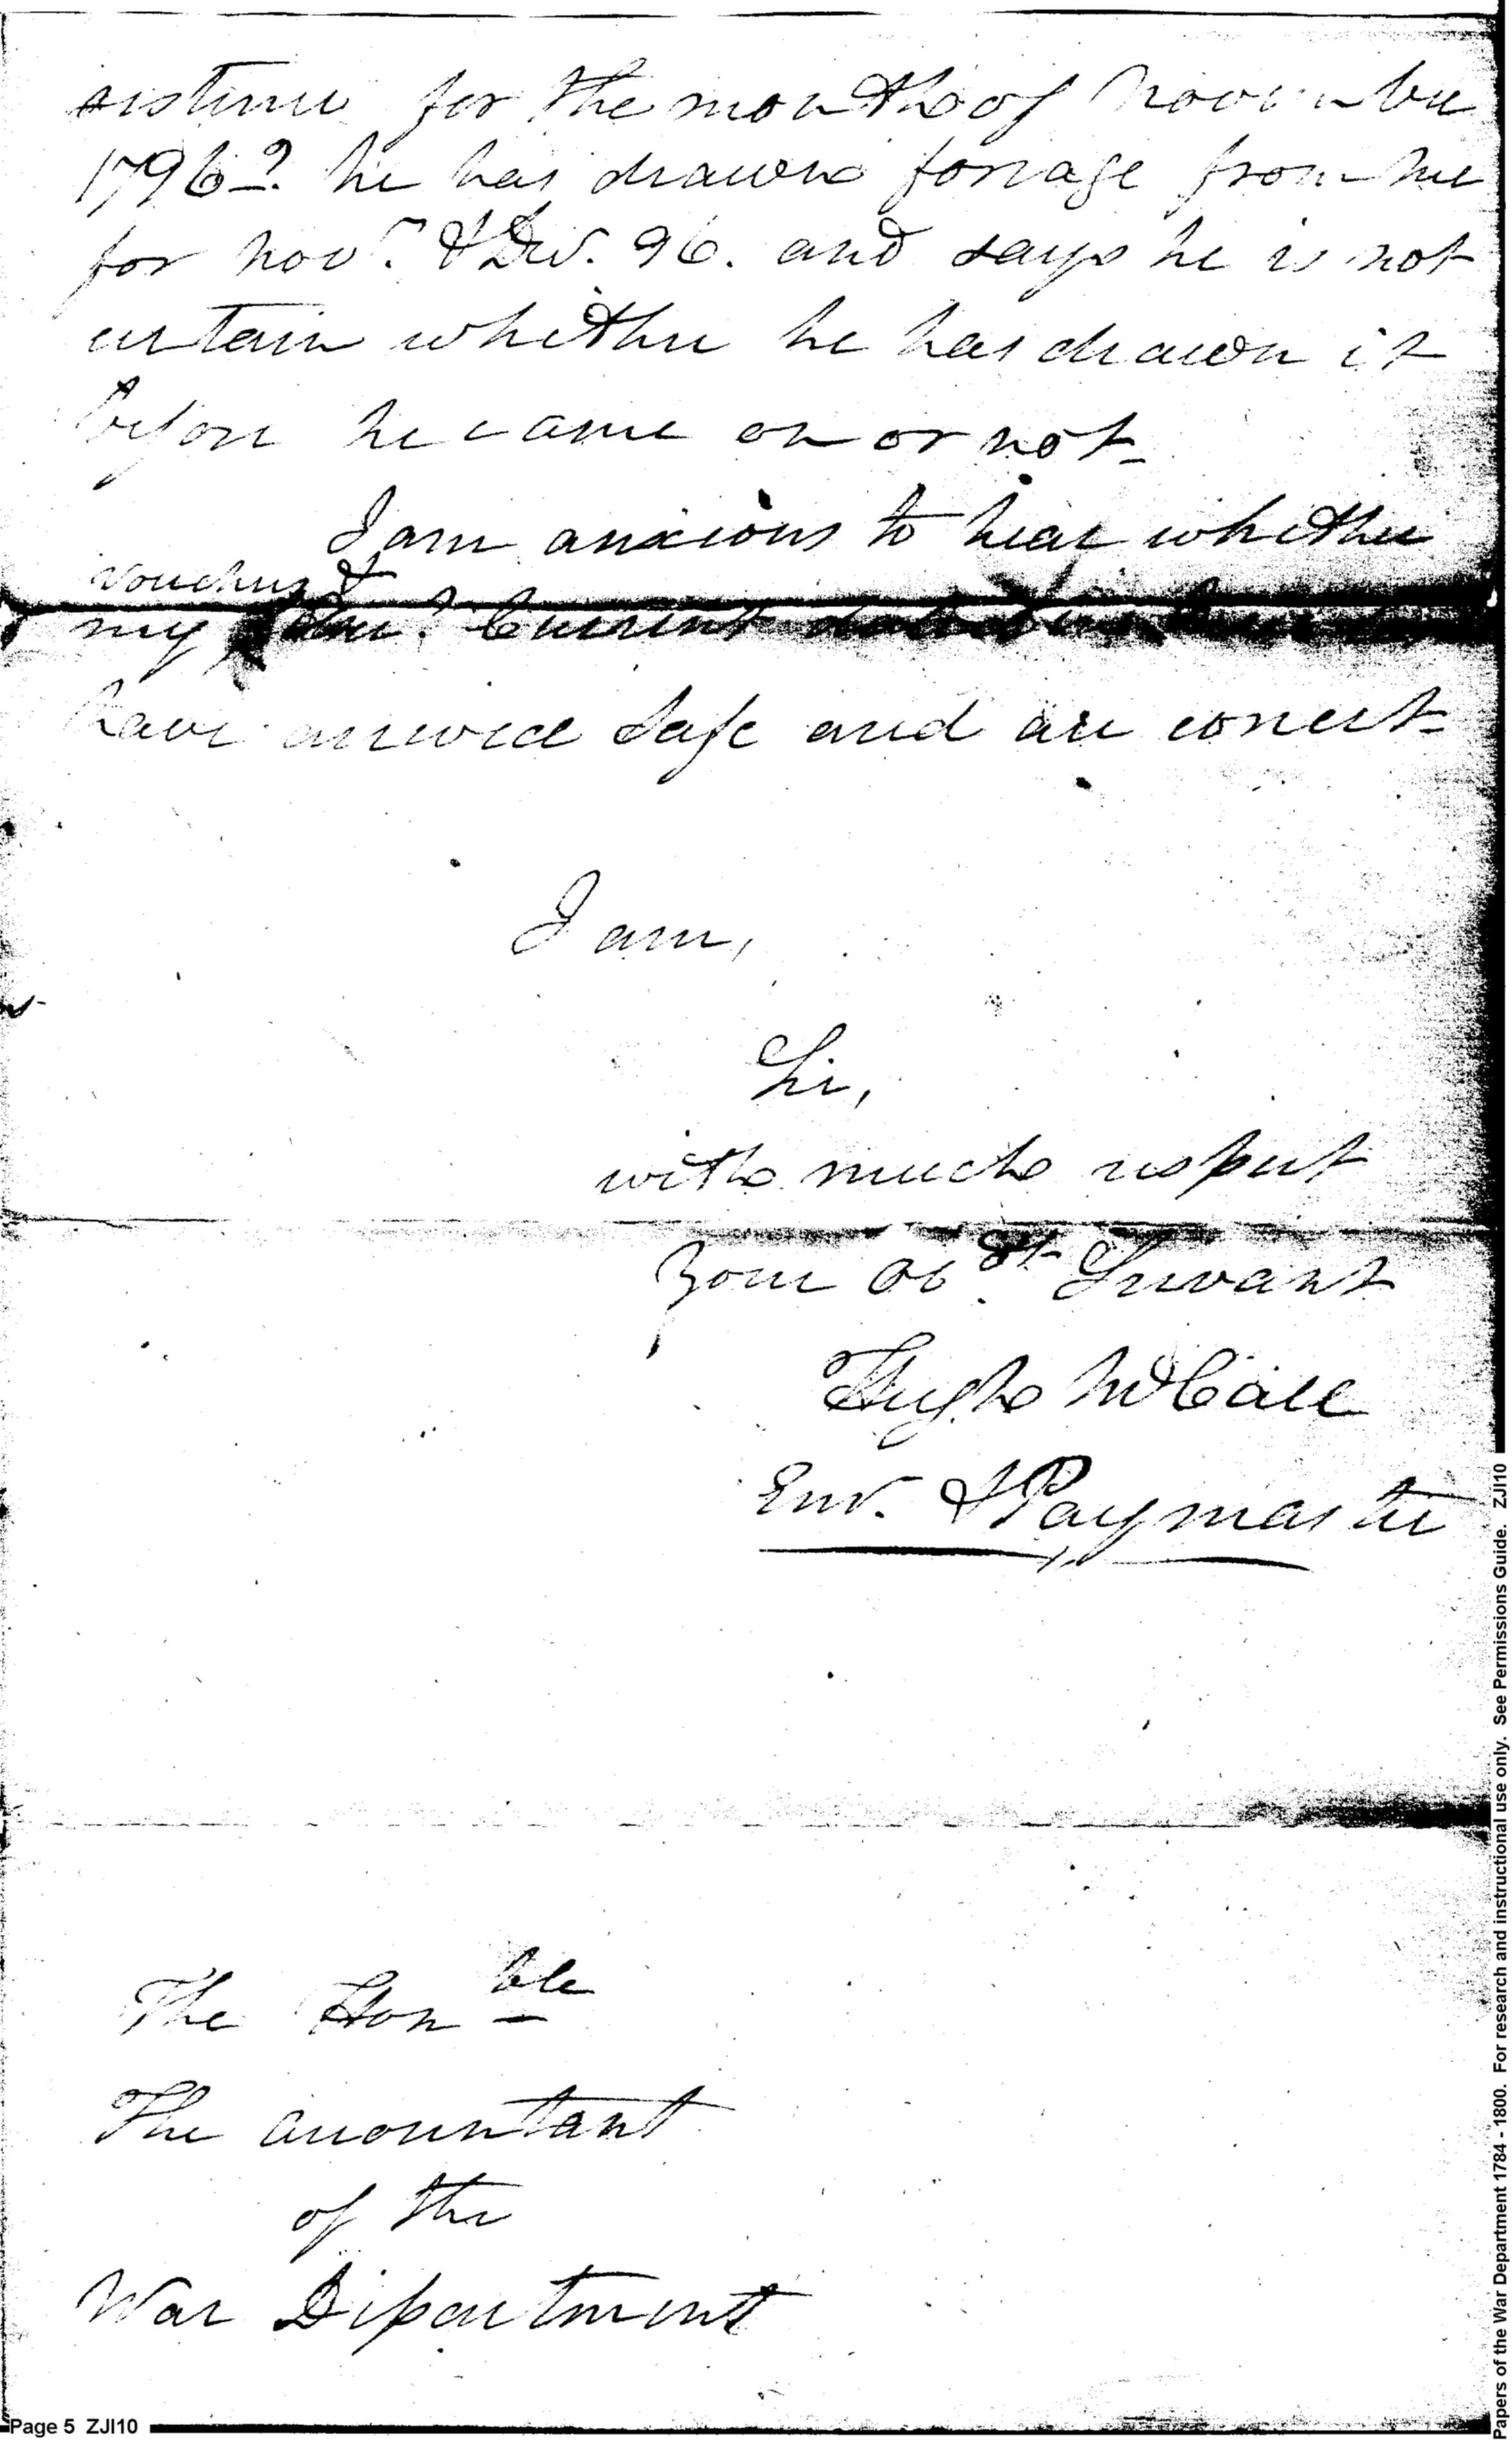 sistence for the month of November
1796? he has drawn forrage from me
for Nov.r & Dec. 96. and says he is not
certain whether he has drawn it
before he came on or not_
I am anxious to hear whether
vouchers &
my Acct. Current
have arrived safe and are correct_
I am,
Sir,
with much respect
Your Obdt. Servant
Hugh McCall
Ens. & Paymaster
The Honble
The accountant
of the
War Department
Page 5 ZJI10
Papers of the War Department 1784 - 1800. For research and instructional use only. See Permissions Guide. ZJI10